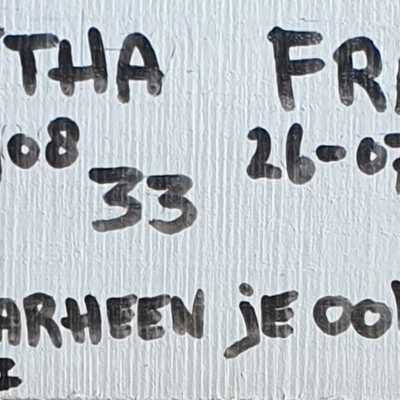 THA FR
08 26-07
33
ARHEEN JE OO